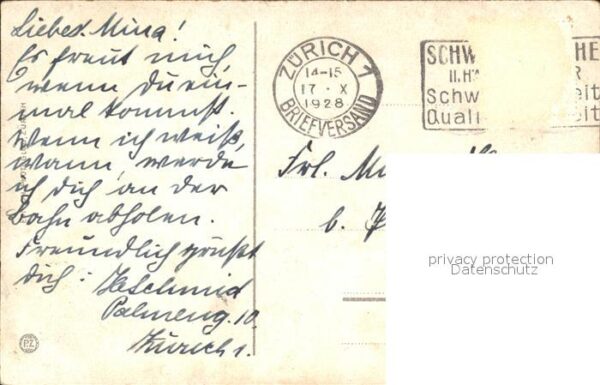 Liebes Mina!
Es freut mich,
wenn du ein-
mal kommst.
Wenn ich weiß,
wann, werde
ich dich an der
Bahn abholen.
Freundlich grüßt
dich: HSchmid
Palmeng. 10
Zürich 1.
ZÜRICH 1
14-15
17. X
1928
BRIEFVERSAND
SCHW HE
II.H R
Schw eit
Quali it
Frl. M
b.
privacy protection
Datenschutz
PZ